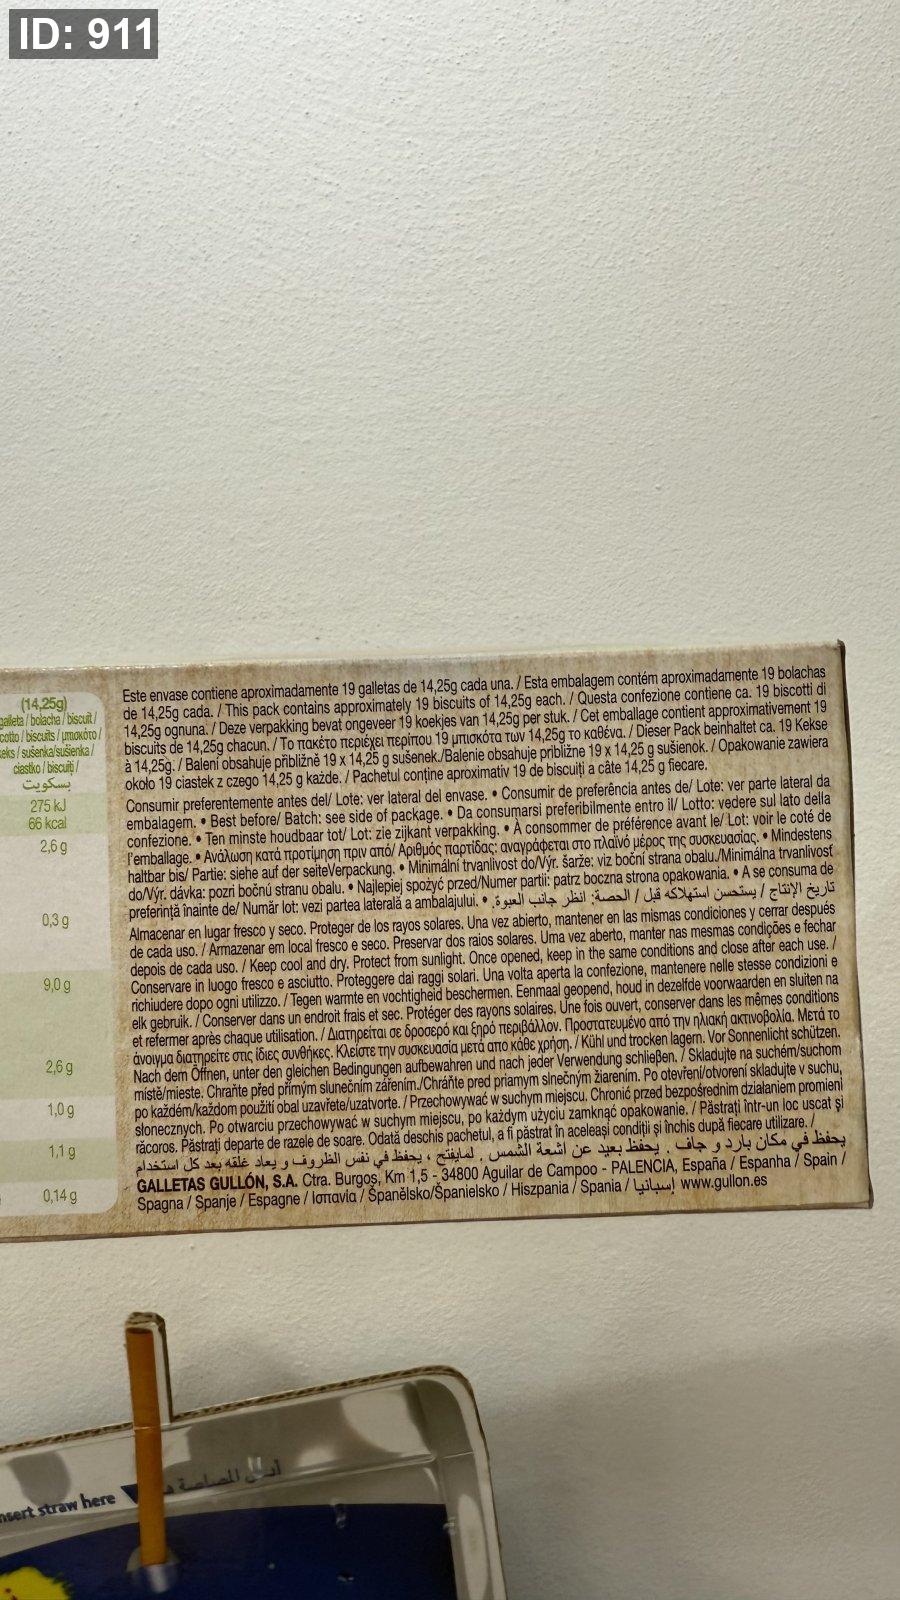 ID: 911
(14,25g)
galleta / bolacha / biscuit /
cotto / biscuits / μπισκότο /
keks / sušenka/sušienka /
ciastko / biscuiți /
بسكويت
275 kJ
66 kcal
2,6 g
0,3 g
9,0 g
2,6 g
1,0 g
1,1 g
0,14 g
Este envase contiene aproximadamente 19 galletas de 14,25g cada una. / Esta embalagem contém aproximadamente 19 bolachas
de 14,25g cada. / This pack contains approximately 19 biscuits of 14,25g each. / Questa confezione contiene ca. 19 biscotti di
14,25g ognuna. / Deze verpakking bevat ongeveer 19 koekjes van 14,25g per stuk. / Cet emballage contient approximativement 19
biscuits de 14,25g chacun. / Το πακέτο περιέχει περίπου 19 μπισκότα των 14,25g το καθένα. / Dieser Pack beinhaltet ca. 19 Kekse
à 14,25g. / Balení obsahuje přibližně 19 x 14,25 g sušenek./Balenie obsahuje približne 19 x 14,25 g sušienok. / Opakowanie zawiera
około 19 ciastek z czego 14,25 g każde. / Pachetul conține aproximativ 19 de biscuiți a câte 14,25 g fiecare.
Consumir preferentemente antes del/ Lote: ver lateral del envase. • Consumir de preferência antes de/ Lote: ver parte lateral da
embalagem. • Best before/ Batch: see side of package. • Da consumarsi preferibilmente entro il/ Lotto: vedere sul lato della
confezione. • Ten minste houdbaar tot/ Lot: zie zijkant verpakking. • À consommer de préférence avant le/ Lot: voir le coté de
l'emballage. • Ανάλωση κατά προτίμηση πριν από/ Αριθμός παρτίδας: αναγράφεται στο πλαϊνό μέρος της συσκευασίας. • Mindestens
haltbar bis/ Partie: siehe auf der seiteVerpackung. • Minimální trvanlivost do/Výr. šarže: viz boční strana obalu./Minimálna trvanlivosť
do/Výr. dávka: pozri bočnú stranu obalu. • Najlepiej spożyć przed/Numer partii: patrz boczna strona opakowania. • A se consuma de
preferință înainte de/ Număr lot: vezi partea laterală a ambalajului. • تاريخ الإنتاج / يستحسن استهلاكه قبل / الحصة: انظر جانب العبوة.
Almacenar en lugar fresco y seco. Proteger de los rayos solares. Una vez abierto, mantener en las mismas condiciones y cerrar después
de cada uso. / Armazenar em local fresco e seco. Preservar dos raios solares. Uma vez aberto, manter nas mesmas condições e fechar
depois de cada uso. / Keep cool and dry. Protect from sunlight. Once opened, keep in the same conditions and close after each use. /
Conservare in luogo fresco e asciutto. Proteggere dai raggi solari. Una volta aperta la confezione, mantenere nelle stesse condizioni e
richiudere dopo ogni utilizzo. / Tegen warmte en vochtigheid beschermen. Eenmaal geopend, houd in dezelfde voorwaarden en sluiten na
elk gebruik. / Conserver dans un endroit frais et sec. Protéger des rayons solaires. Une fois ouvert, conserver dans les mêmes conditions
et refermer après chaque utilisation. / Διατηρείται σε δροσερό και ξηρό περιβάλλον. Προστατευμένο από την ηλιακή ακτινοβολία. Μετά το
άνοιγμα διατηρείτε στις ίδιες συνθήκες. Κλείστε την συσκευασία μετά απο κάθε χρήση. / Kühl und trocken lagern. Vor Sonnenlicht schützen.
Nach dem Öffnen, unter den gleichen Bedingungen aufbewahren und nach jeder Verwendung schließen. / Skladujte na suchém/suchom
místě/mieste. Chraňte před přímým slunečním zářením./Chráňte pred priamym slnečným žiarením. Po otevření/otvorení skladujte v suchu,
po každém/každom použití obal uzavřete/uzatvorte. / Przechowywać w suchym miejscu. Chronić przed bezpośrednim działaniem promieni
słonecznych. Po otwarciu przechowywać w suchym miejscu, po każdym użyciu zamknąć opakowanie. / Păstrați într-un loc uscat și
răcoros. Păstrați departe de razele de soare. Odată deschis pachetul, a fi păstrat în aceleași condiții și închis după fiecare utilizare. /
يحفظ في مكان بارد و جاف . يحفظ بعيد عن اشعة الشمس . لمايفتح ، يحفظ في نفس الظروف و يعاد غلقه بعد كل استخدام
GALLETAS GULLÓN, S.A. Ctra. Burgos, Km 1,5 - 34800 Aguilar de Campoo - PALENCIA, España / Espanha / Spain /
Spagna / Spanje / Espagne / Ισπανία / Španělsko/Španielsko / Hiszpania / Spania / إسبانيا www.gullon.es
nsert straw here